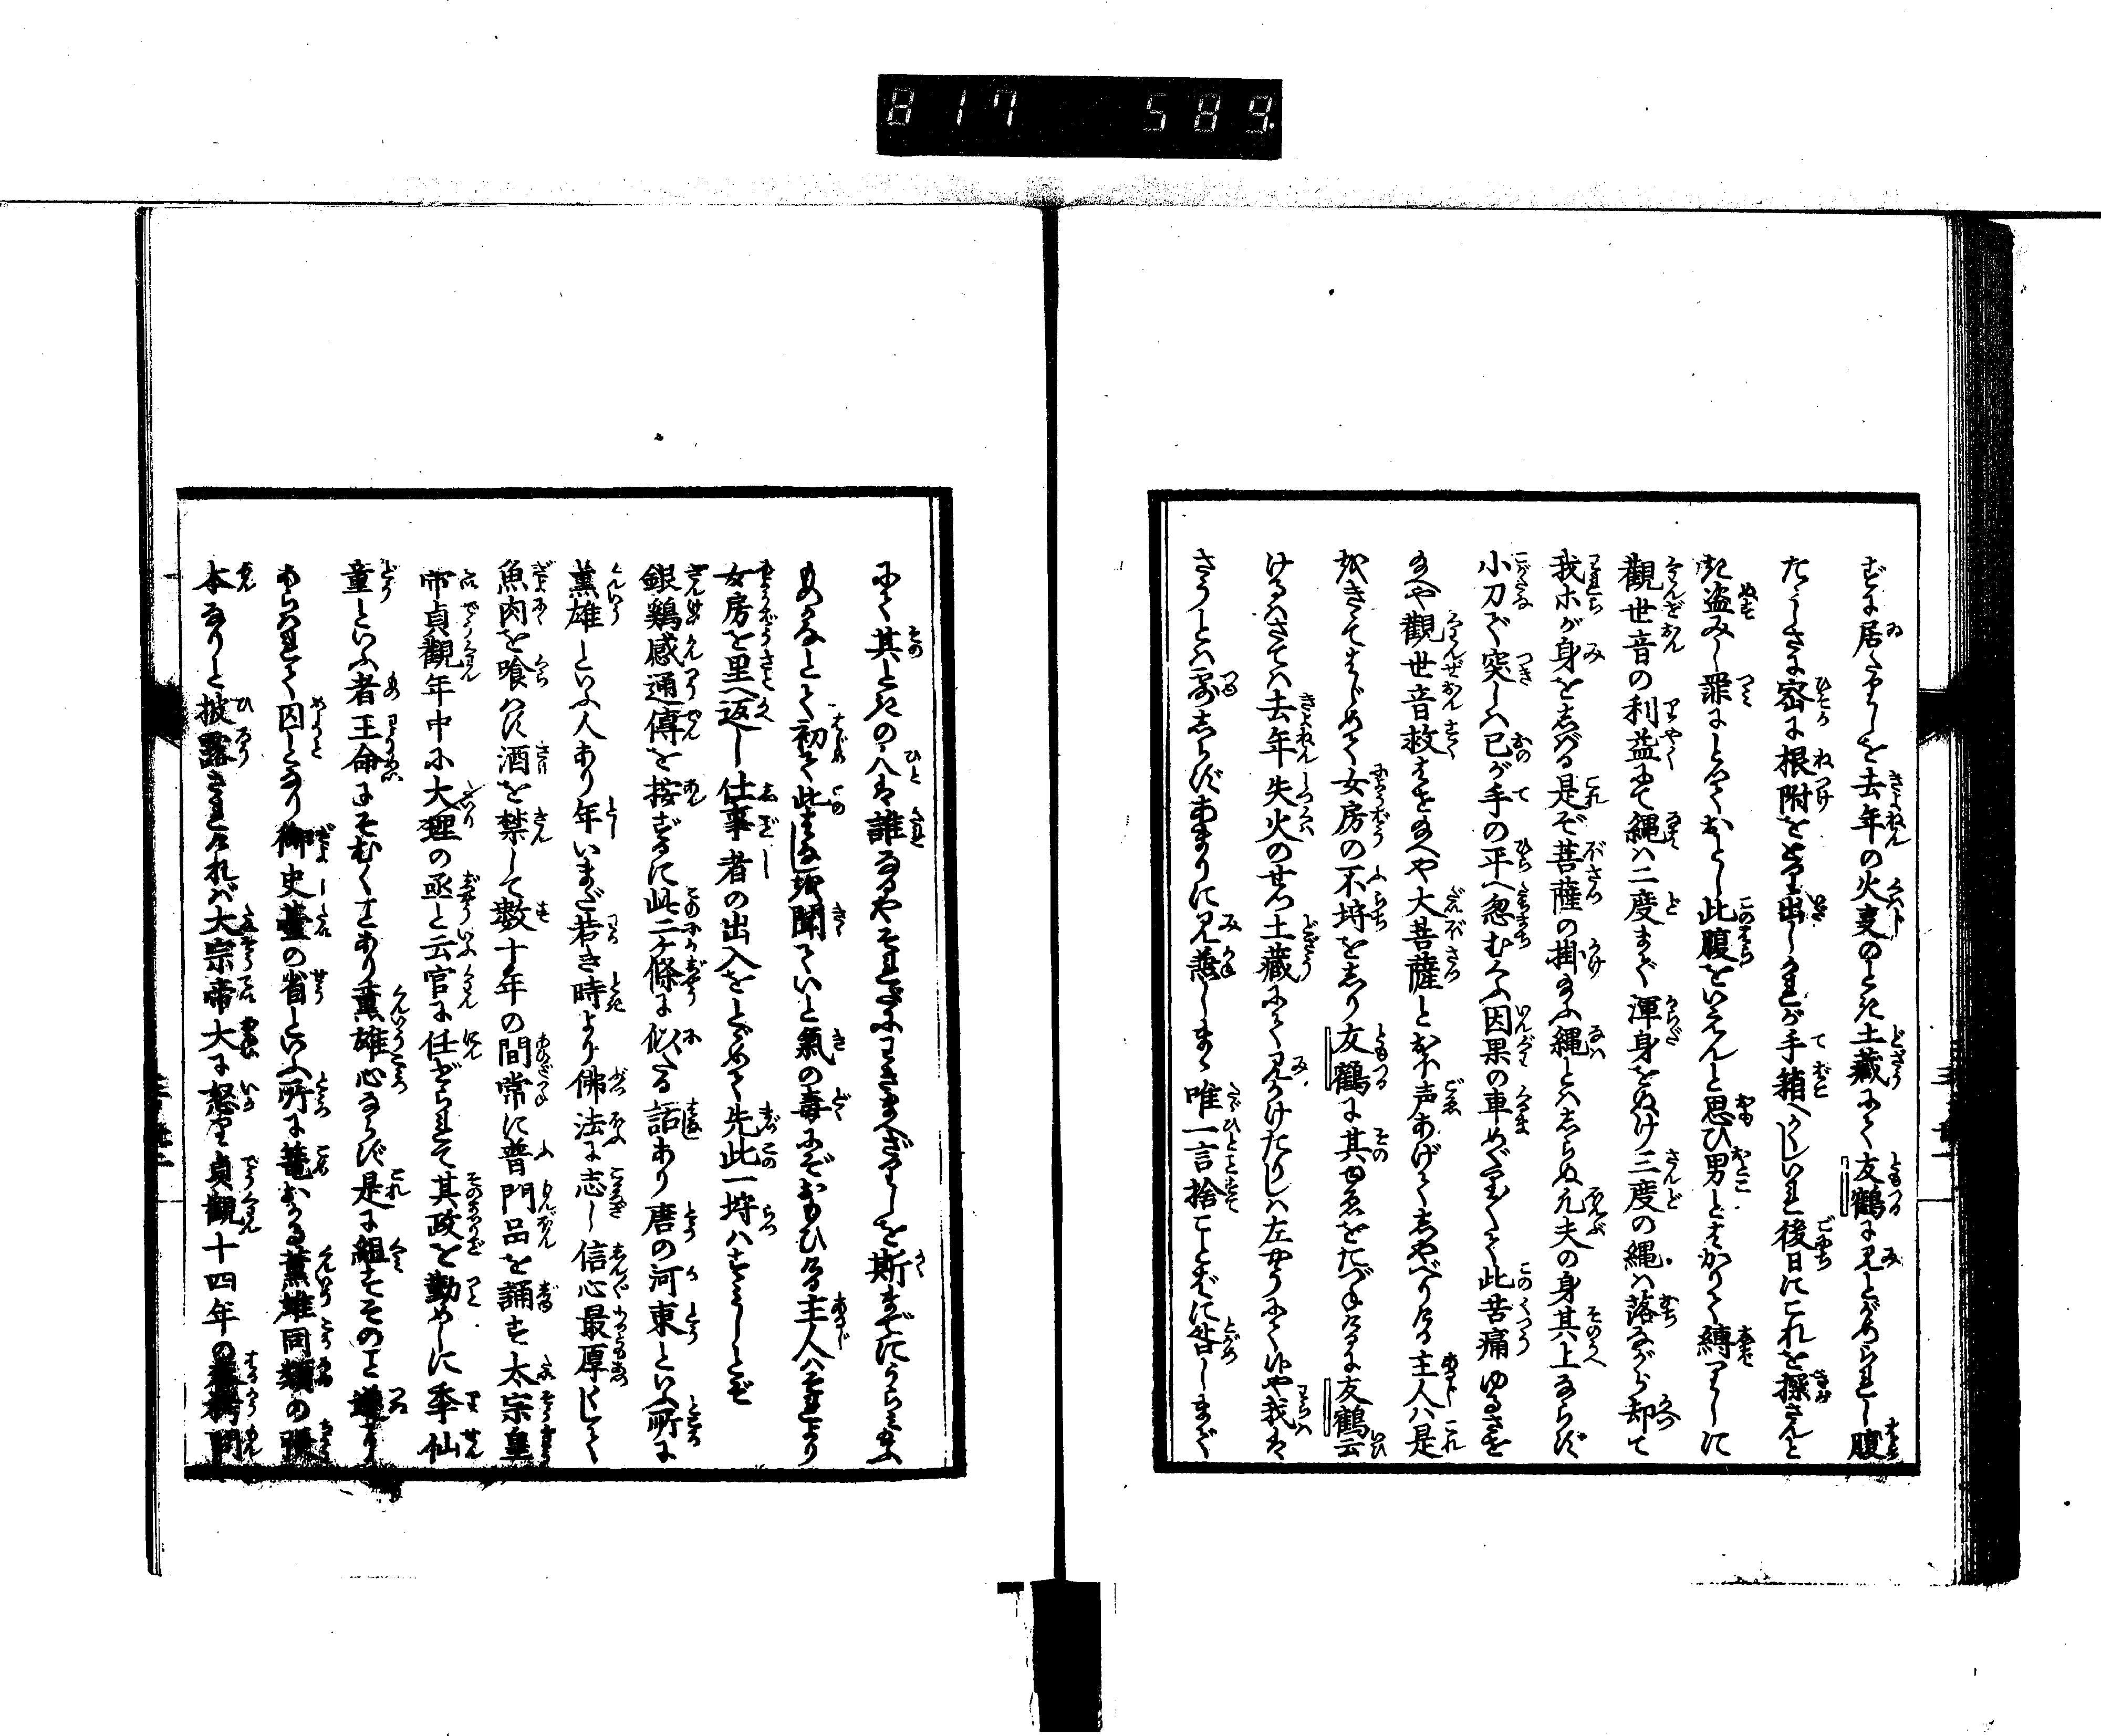 817 589
ずに居たりしを去年の火事のとき土藏にて友鶴に見とがめられし腹
たゝしさに密に根附をとり出しこれが手箱へかくしいれ後日にこれを探さんと
き盗みし罪におとしておとし此腹をいえんと思ひ男とはかりて縛りしに
觀世音の利益にて縄は二度まで渾身をぬけ三度の縄は落ながら却て
我等が身をしばる是ぞ菩薩の掛給ふ縄とはしらぬ凡夫の身其上ならず
小刀で突しは己が手の平へ忽むくふ因果の車めぐり〳〵て此苦痛ゆるさせ
給へや觀世音救はせ給へや大菩薩と大声あげてしやべりける主人は是
をきゝてはじめて女房の不埒をしり友鶴に其ゆゑをたづねけるに友鶴云
けるはさては去年失火のせつ土藏にて見うけたりしは左やうにて候や我は
さうとは露しらずあまりに見兼しまゝ唯一言捨ことばに咎しまで
にて其ときの人は誰なるやそれだにわきまへざりしを斯までにうらみ給ふ
ものなるとて初て此はなしを聞ていと氣の毒にぞおもひける主人はそれより
女房を里へ返し仕事者の出入をとゞめて先此一埒はすみしとぞ
銀鶏感通傳を按ずるに此二ケ條に似たる話あり唐の河東といふ所に
薫雄といふ人あり年いまだ若き時より佛法に志し信心最厚くして
魚肉を喰はず酒を禁して數十年の間常に普門品を誦す太宗皇
帝貞觀年中に大理の丞と云官に任ぜられて其政を勤めしに季仙
童といふ者王命にそむくことあり薫雄心ならず是に組せそのこと
あらはれて囚となり御史臺の省といふ所に篭おかる薫雄同類の張
本なりと披露されければ大宗帝大に怒り貞觀十四年の